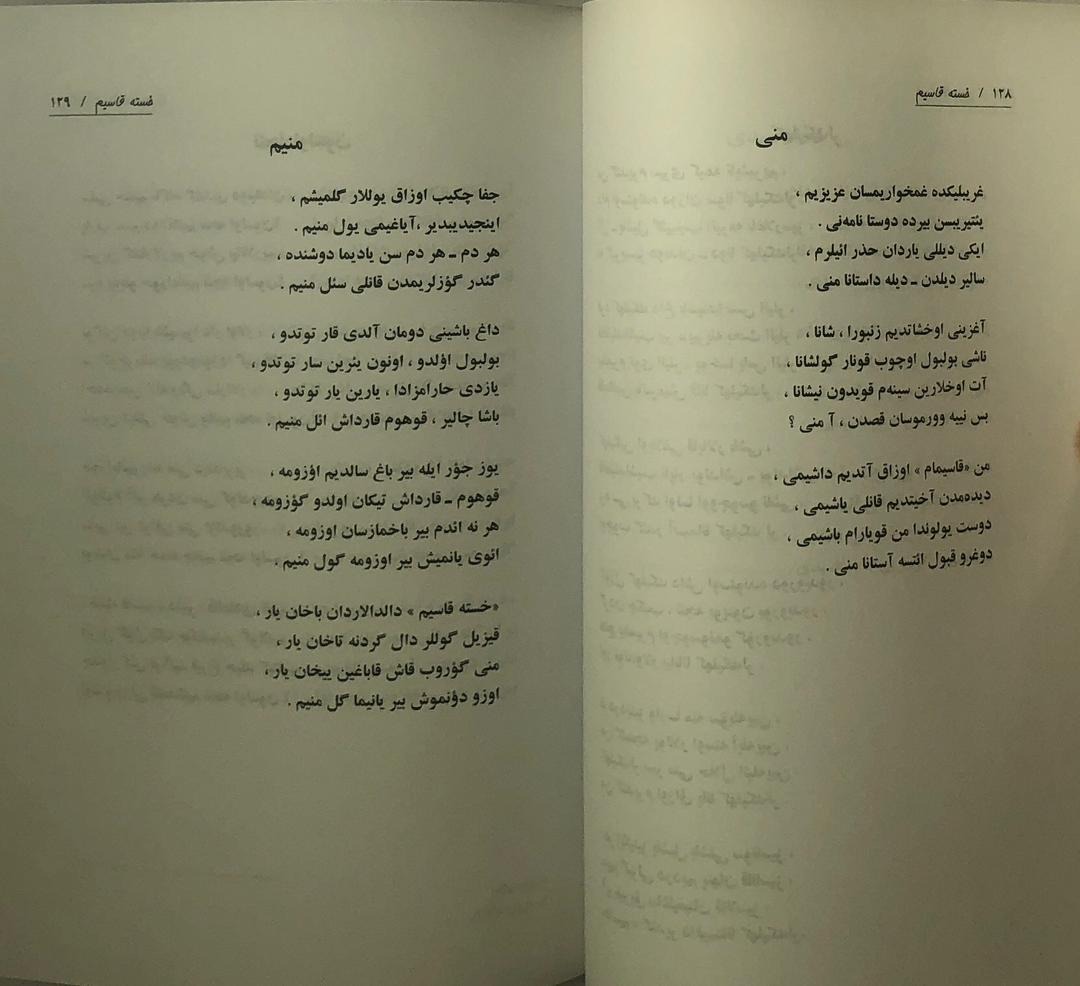 ۱۲۸ / خسته قاسیم
منی
غریبلیکده غمخواریمسان عزیزیم ،
یئتیریبسن بیرده دوستا نامه‌نی .
ایکی دیللی یاردان حذر ائیلرم ،
سالیر دیلدن ـ دیله داستانا منی .
آغزینی اوخشاتدیم زنبورا ، شانا ،
ناشی بولبول اوچوب قونار گولشانا ،
آت اوخلارین سینه‌م قویدون نیشانا ،
بس نییه وورموسان قصدن ، آ منی ؟
من «قاسیمام » اوزاق آتدیم داشیمی ،
دیده‌مدن آخیتدیم قانلی یاشیمی ،
دوست یولوندا من قویارام باشیمی ،
دوغرو قبول ائتسه آستانا منی .
خسته قاسیم / ۱۲۹
منیم
جفا چکیب اوزاق یوللار گلمیشم ،
اینجیدیبدیر ،آیاغیمی یول منیم .
هر دم ـ هر دم سن یادیما دوشنده ،
گئدر گؤزلریمدن قانلی سئل منیم .
داغ باشینی دومان آلدی قار توتدو ،
بولبول اؤلدو ، اونون یئرین سار توتدو ،
یازدی حارامزادا ، یارین یار توتدو ،
باشا چالیر ، قوهوم قارداش ائل منیم .
یوز جؤر ایله بیر باغ سالدیم اؤزومه ،
قوهوم ـ قارداش تیکان اولدو گؤزومه ،
هر نه اندم بیر باخمازسان اوزومه ،
ائوی یانمیش بیر اوزومه گول منیم .
«خسته قاسیم » دالدالاردان باخان یار ،
قیزیل گوللر دال گردنه تاخان یار ،
منی گؤروب قاش قاباغین ییخان یار ،
اوزو دؤنموش بیر یانیما گل منیم .